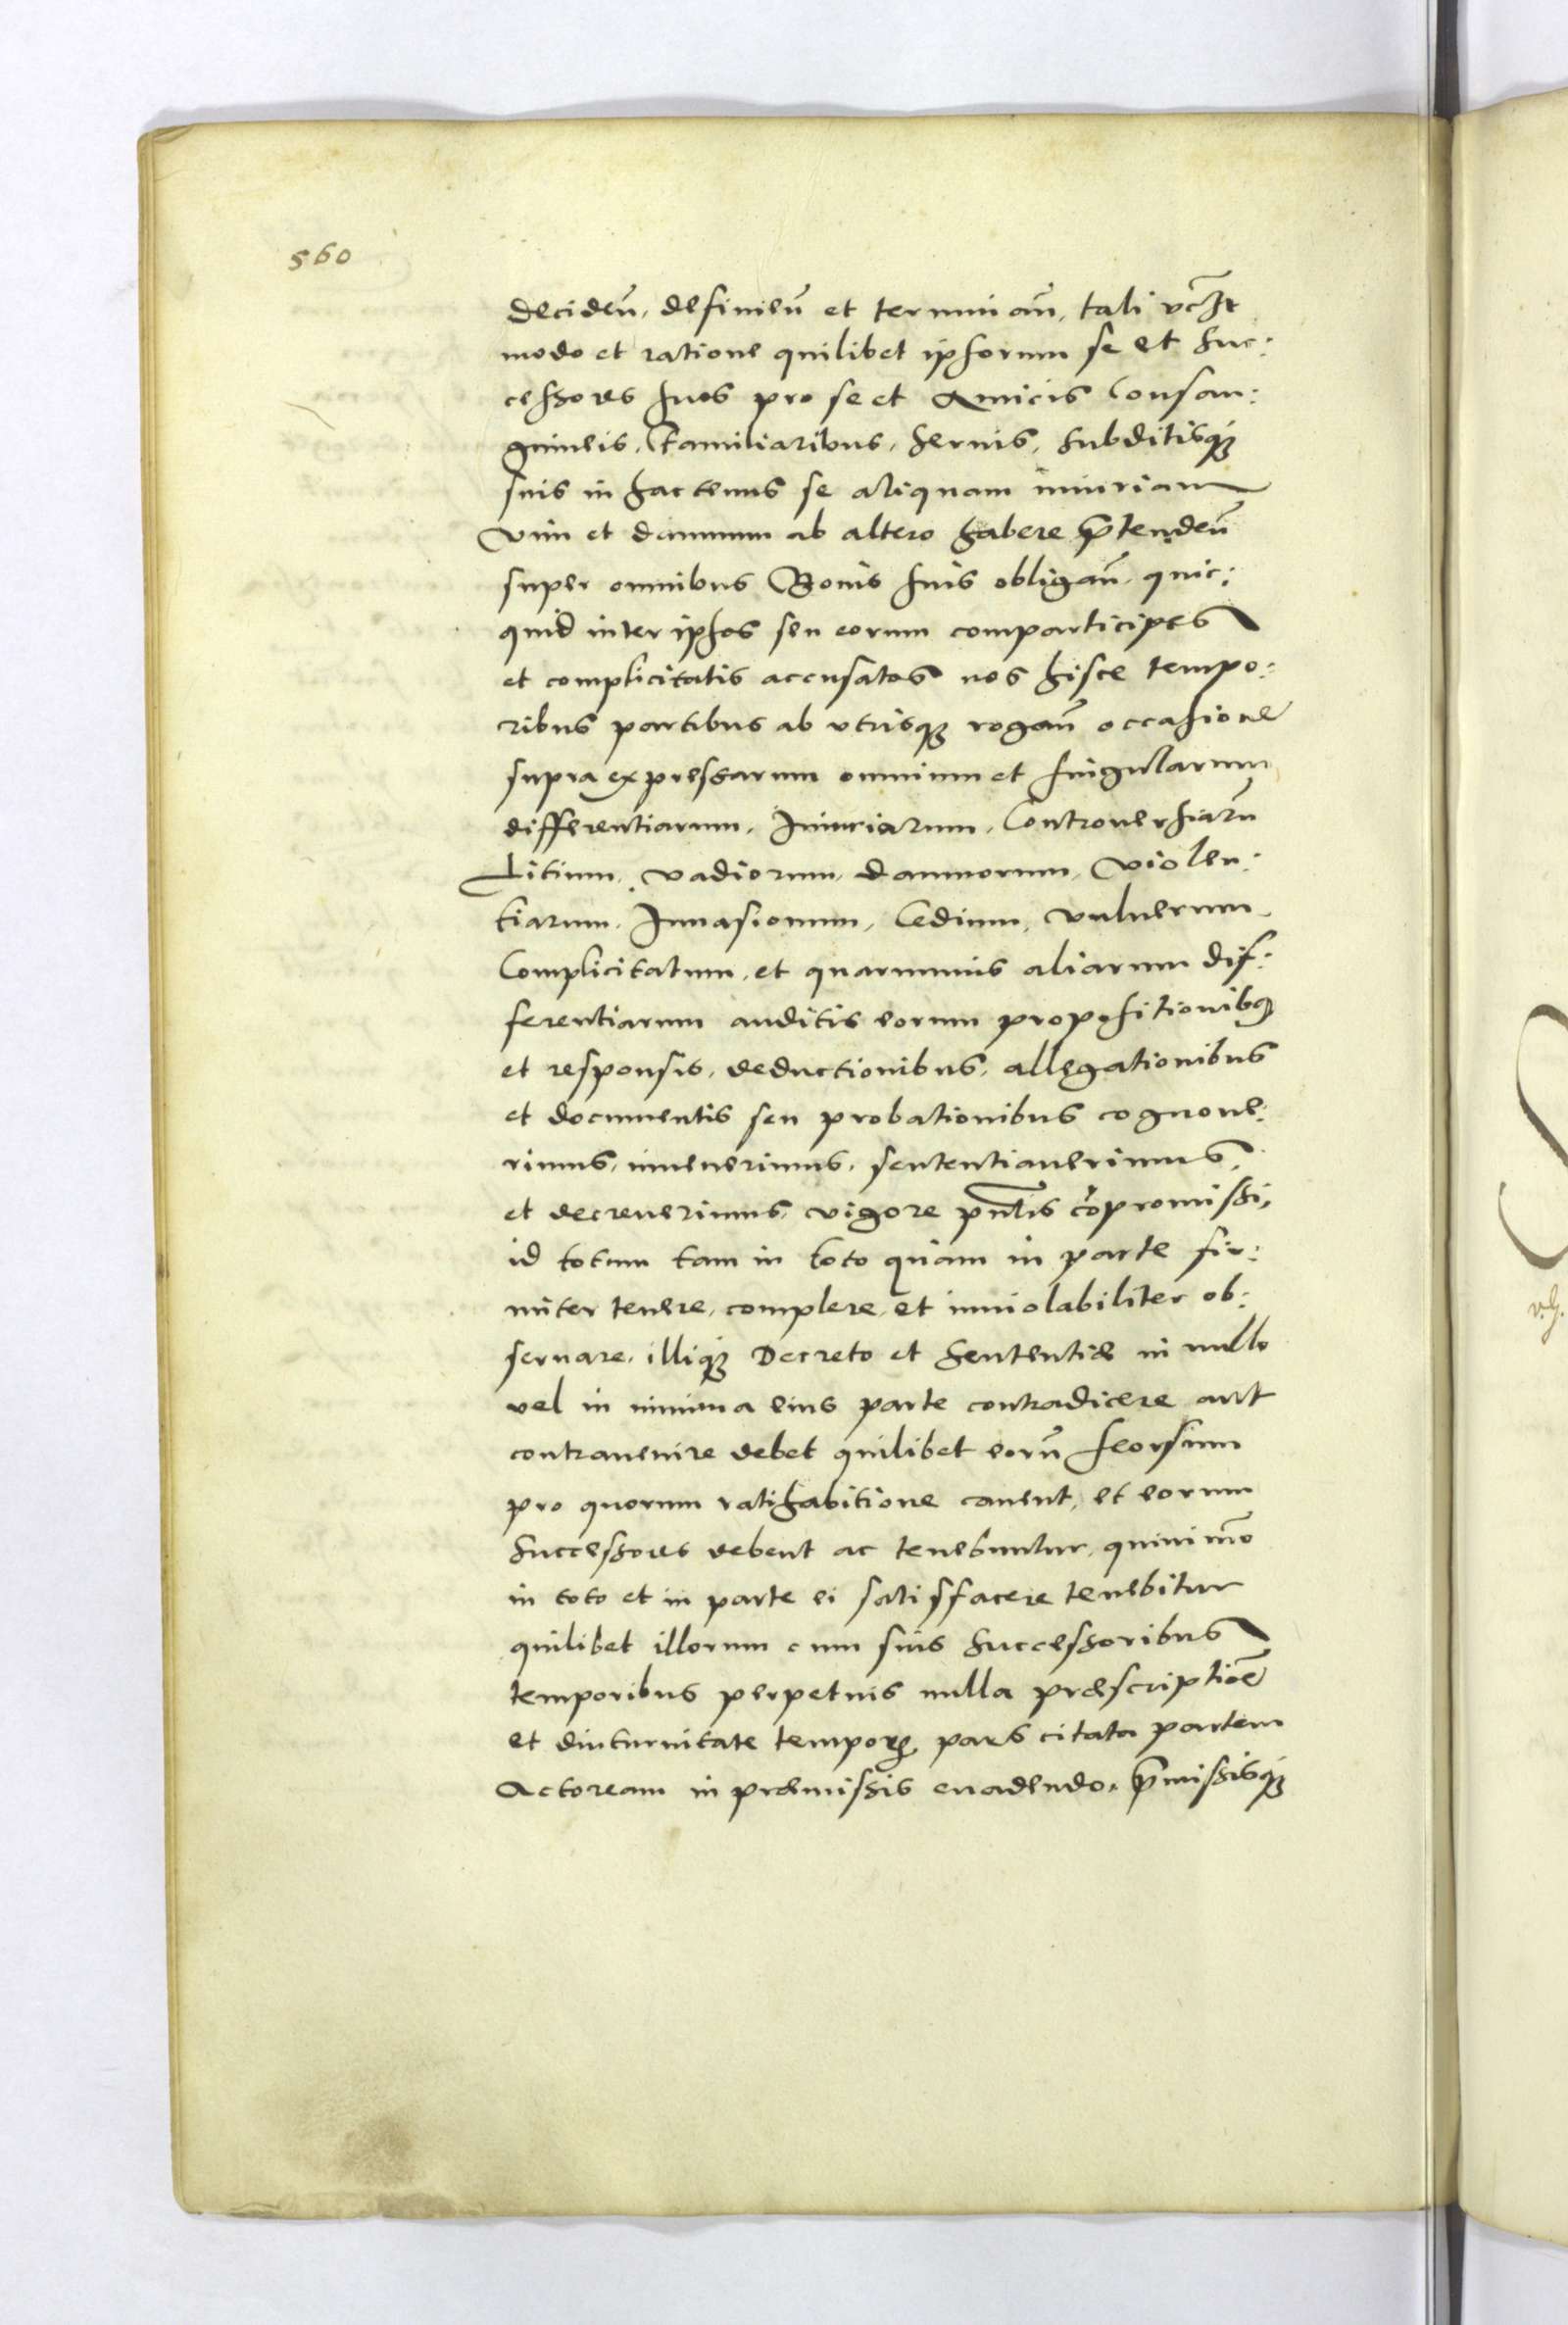 560
decideñ, definieñ et terminañ, tali vcꝫt
modo et ratione quilibet ipsorum se et suc:
cessores suos pro se et Amicis Consan:
guineis, Familiaribus, seruis, subditisq́ꝫ
suis in hactenus se aliquam iniuriam
vim et damnum ab altero habere p̃tendeñ
super omnibus Bonis suis obligañ, quic:
quid inter ipsos seu eorum comparticipes
et complicitatis accusatos nos hisce tempo:
ribus partibus ab vtrisqꝫ rogañ occasione
supra expressarum omnium et singularum
differentiarum, Iniuriarum, Controuersiarũ
Litium, vadiorum, damnorum, violen:
tiarum, Inuasionum, Cedium, vulnerum
Complicitatum, et quarumuis aliarum dif:
ferentiarum auditis eorum propositionibqꝫ
et responsis, deductionibus, allegationibus
et documentis seu probationibus cognoue:
rimus, inuenerimus, sententiauerimus,
et decreuerimus, vigore pñtis cõpromissi,
id totum tam in toto quàm in parte fir:
miter tenere, complere, et inuiolabiliter ob:
seruare, illiq́ꝫ Decreto et sententiæ in nullo
vel in minima eius parte contradicere aut
contrauenire debet quilibet eorũ seorsim
pro quorum ratihabitione cauent, et eorum
successores debent ac tenebuntur, quinim̃o
in toto et in parte ei satisfacere tenebitur
quilibet illorum cum suis successoribus
temporibus perpetuis nulla præscriptiõe
et diuturnitate temporꝫ pars citata partem
Actoream in præmissis euadendo, p̃missisq́ꝫ